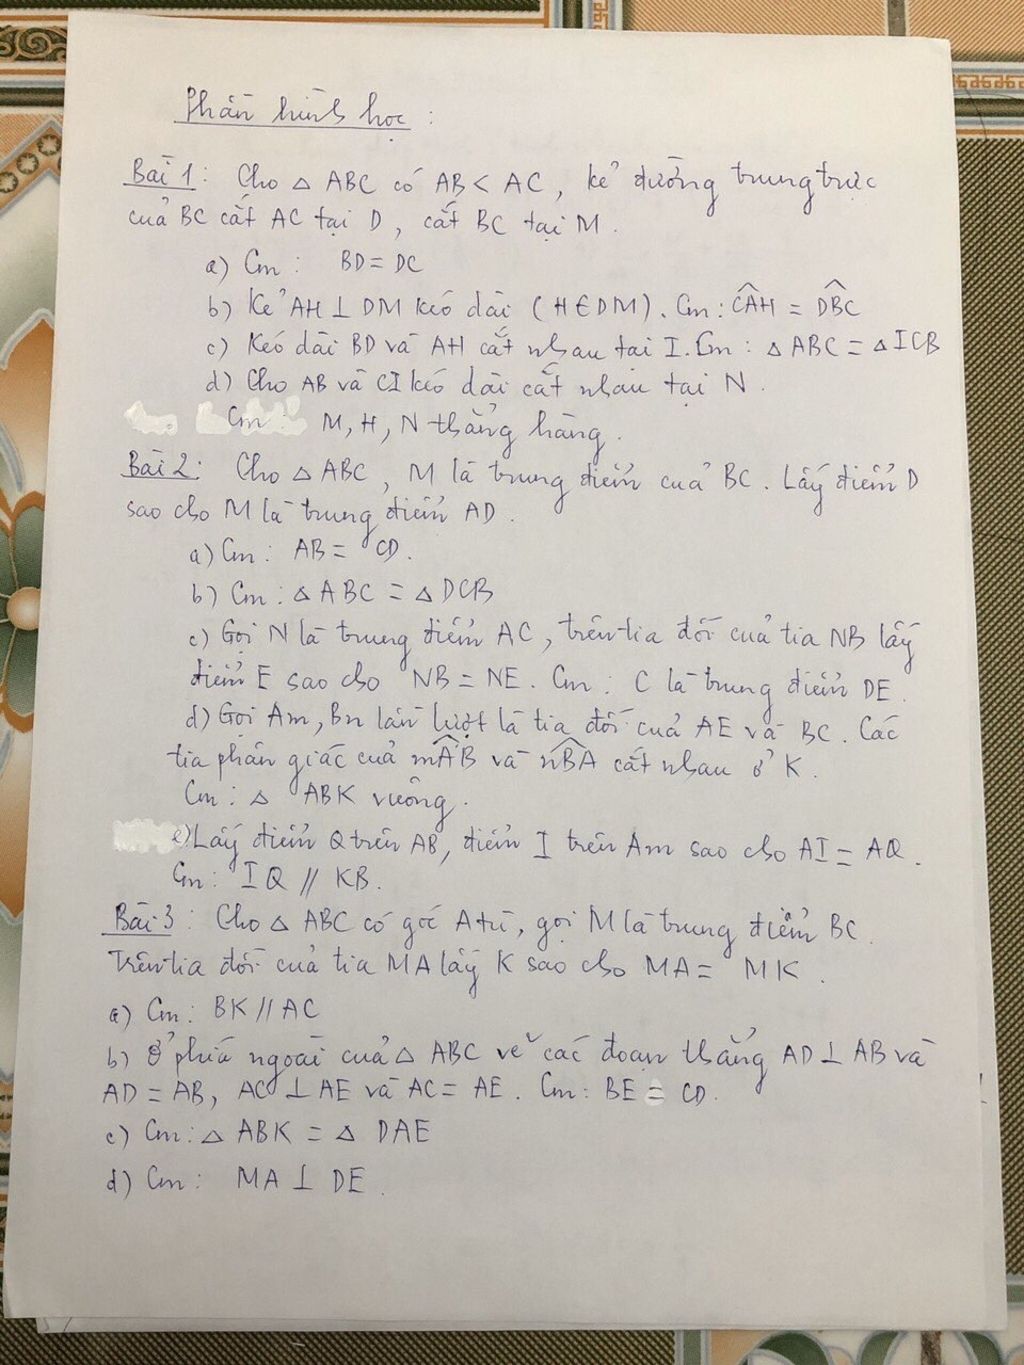 Phần hình học :
Bài 1 : Cho △ ABC có AB < AC, kẻ đường trung trực
của BC cắt AC tại D, cắt BC tại M.
a) Cm : BD = DC
b) Kẻ AH ⊥ DM kéo dài (H ∈ DM). Cm : CÂH = DB̂C
c) Kéo dài BD và AH cắt nhau tại I. Cm : △ ABC = △ ICB
d) Cho AB và CI kéo dài cắt nhau tại N.
Cm : M, H, N thẳng hàng.
Bài 2 : Cho △ ABC, M là trung điểm của BC. Lấy điểm D
sao cho M là trung điểm AD.
a) Cm : AB = CD.
b) Cm : △ ABC = △ DCB
c) Gọi N là trung điểm AC, trên tia đối của tia NB lấy
điểm E sao cho NB = NE. Cm : C là trung điểm DE.
d) Gọi Am, Bn lần lượt là tia đối của AE và BC. Các
tia phân giác của mÂB và nB̂A cắt nhau ở K.
Cm : △ ABK vuông.
e) Lấy điểm Q trên AB, điểm I trên Am sao cho AI = AQ.
Cm : IQ // KB.
Bài 3 : Cho △ ABC có góc A tù, gọi M là trung điểm BC.
Trên tia đối của tia MA lấy K sao cho MA = MK.
a) Cm : BK // AC
b) Ở phía ngoài của △ ABC vẽ các đoạn thẳng AD ⊥ AB và
AD = AB, AC ⊥ AE và AC = AE. Cm : BE = CD.
c) Cm : △ ABK = △ DAE
d) Cm : MA ⊥ DE.